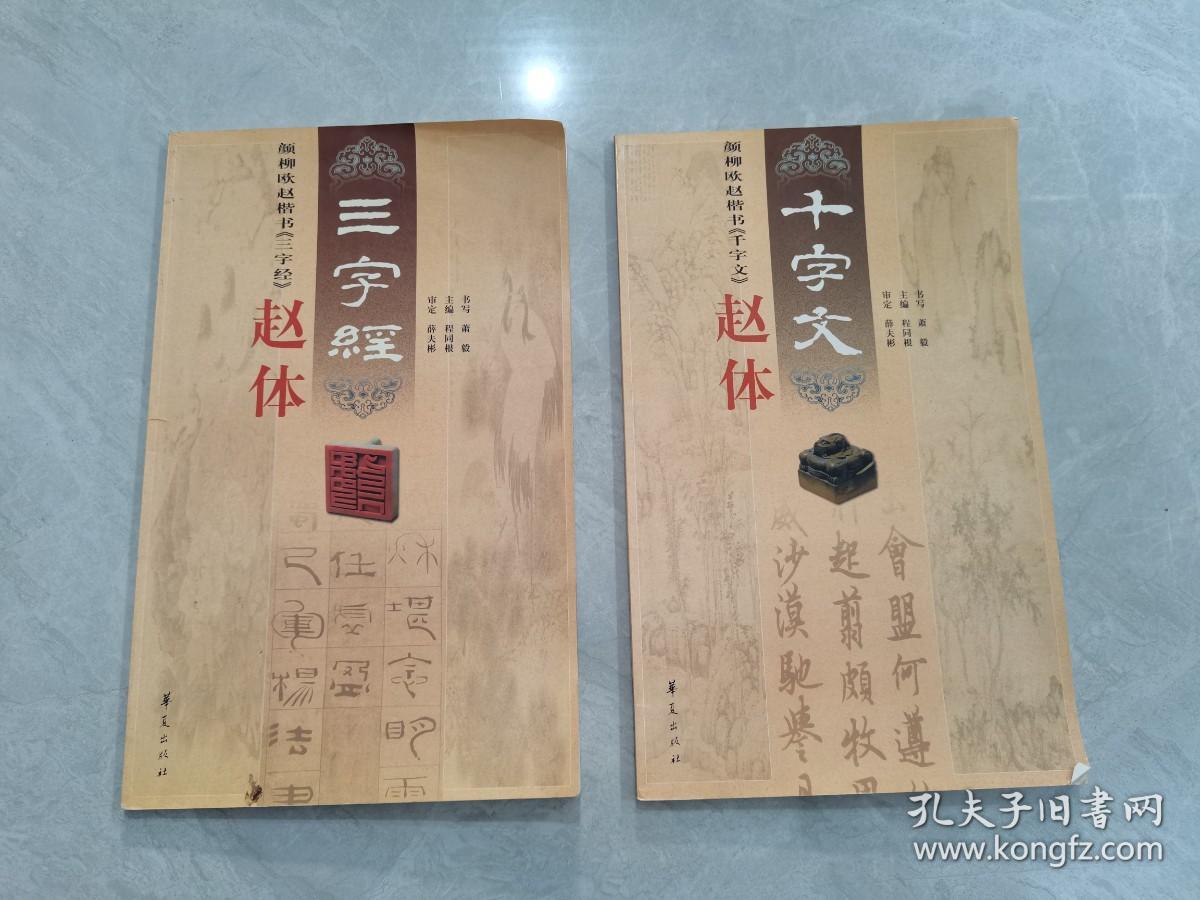 颜柳欧赵楷书《三字经》
三字經
赵体
书写 萧毅
主编 程同根
审定 薛夫彬
任
堪
楊
法
華夏出版社
颜柳欧赵楷书《千字文》
千字文
赵体
书写 萧毅
主编 程同根
审定 薛夫彬
會盟何遵
起翦頗牧
沙漠馳譽
華夏出版社
孔夫子旧书网
www.kongfz.com